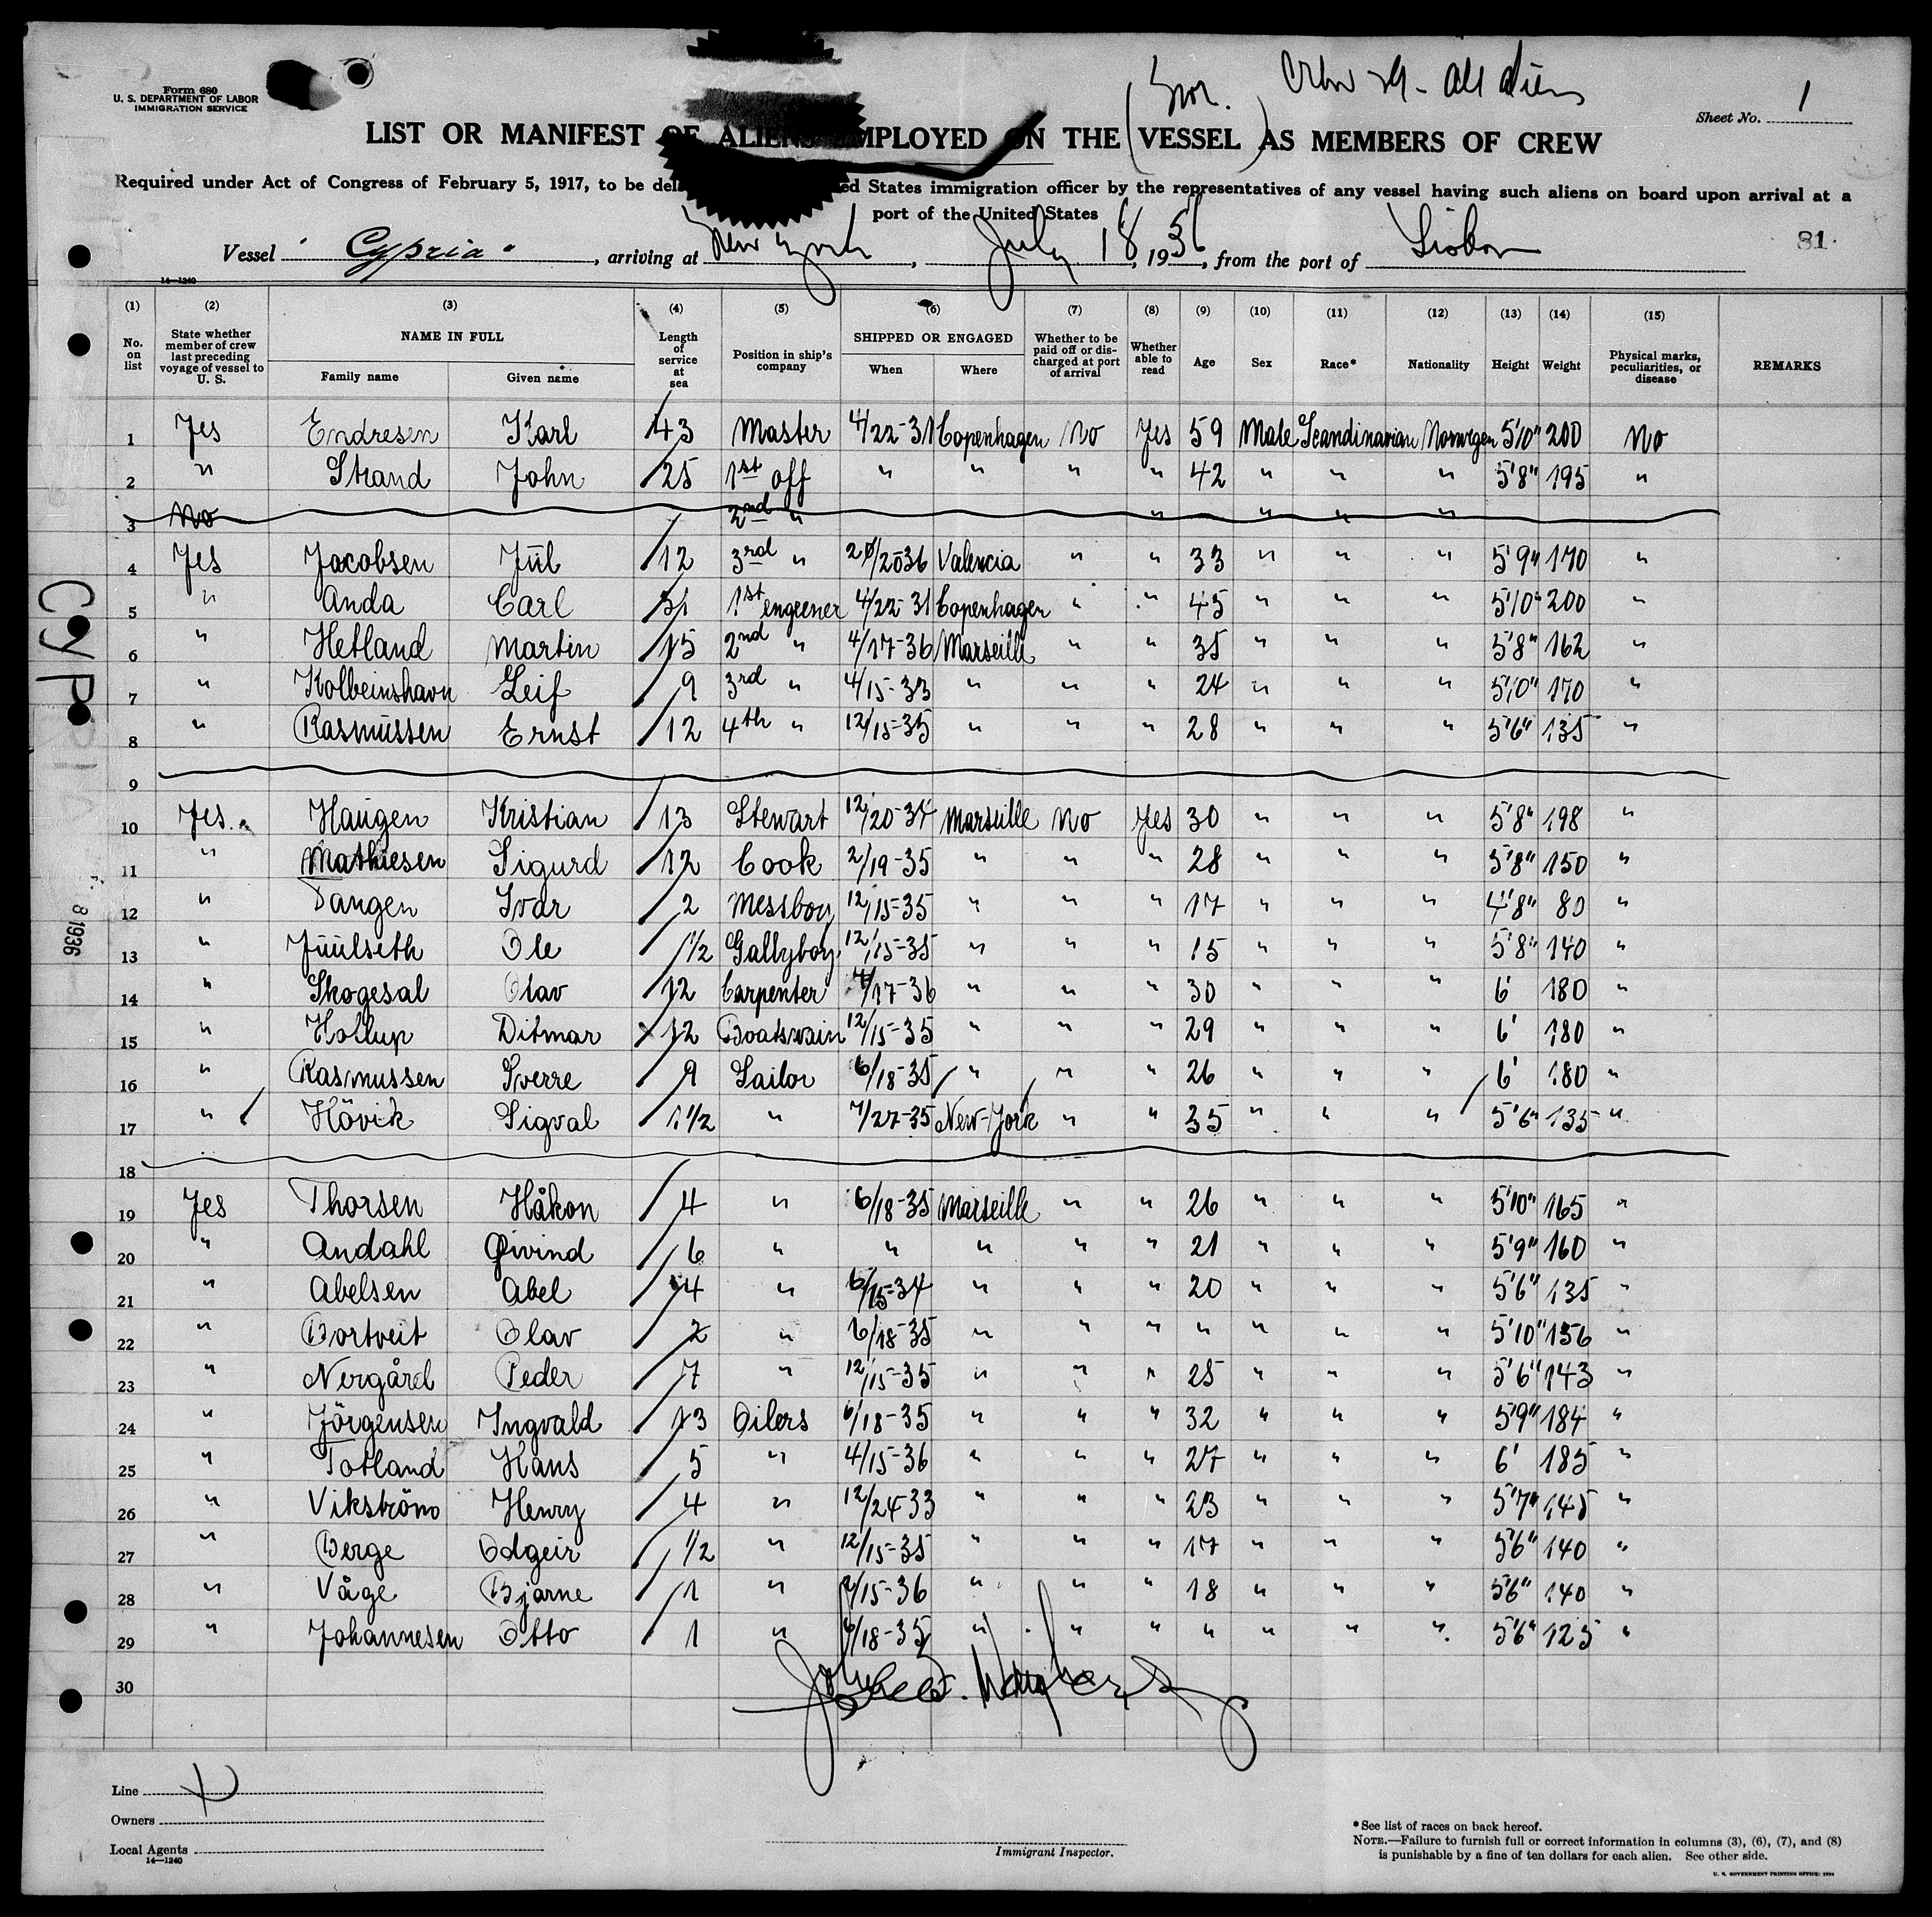 Form 680
U. S. DEPARTMENT OF LABOR
IMMIGRATION SERVICE
Nor.
Sheet No. 1
LIST OR MANIFEST OF ALIENS EMPLOYED ON THE (VESSEL) AS MEMBERS OF CREW
Required under Act of Congress of February 5, 1917, to be del ed States immigration officer by the representatives of any vessel having such aliens on board upon arrival at a
port of the United States
Vessel "Cypria", arriving at New York, July 18, 1936, from the port of Lisbon
81
14—1240
(1) (2) (3) (4) (5) (6) (7) (8) (9) (10) (11) (12) (13) (14) (15)
No. on list
State whether member of crew last preceding voyage of vessel to U. S.
NAME IN FULL
Family name Given name
Length of service at sea
Position in ship's company
SHIPPED OR ENGAGED
When Where
Whether to be paid off or discharged at port of arrival
Whether able to read
Age Sex Race* Nationality Height Weight
Physical marks, peculiarities, or disease
REMARKS
1 Yes Endresen Karl 43 Master 4/22-31 Copenhagen No Yes 59 Male Scandinavian Norwegen 5'10" 200 No
2 " Strand John 25 1st off " " " " 42 " " " 5'8" 195 "
3 No 2nd " " " " "
4 Yes Jacobsen Jül 12 3rd " Valencia " " 33 " " " 5'9" 170 "
5 " Anda Carl 1st engeener 4/22-31 Copenhagen " " 45 " " " 5'10" 200 "
6 " Hetland Martin 15 2nd " 4/17-36 Marseille " " 35 " " " 5'8" 162 "
7 " Kolbeinshavn Leif 9 3rd " 4/15-33 " " " 24 " " " 5'10" 170 "
8 " Rasmüssen Ernst 12 4th " 12/15-35 " " " 28 " " " 5'6" 135 "
9
10 Yes Haugen Kristian 13 Stewart 12/20-34 Marseille No Yes 30 " " " 5'8" 198 "
11 " Mathiesen Sigurd 12 Cook 2/19-35 " " " 28 " " " 5'8" 150 "
12 " Tangen Ivar 2 Messboy 12/15-35 " " " 17 " " " 4'8" 80 "
13 " Juulseth Ole 1/2 Gallyboy 12/15-35 " " " 15 " " " 5'8" 140 "
14 " Skogesal Olav 12 Carpenter 4/17-36 " " " 30 " " " 6' 180 "
15 " Hollup Ditmar 12 Boatswain 12/15-35 " " " 29 " " " 6' 180 "
16 " Rasmussen Sverre 9 Sailor 6/18-35 " " " 26 " " " 6' 180 "
17 " Hövik Sigval 1 1/2 " 7/27-35 New-York " " 35 " " " 5'6" 135 "
18
19 Yes Thorsen Håkon 4 " 6/18-35 Marseille " " 26 " " " 5'10" 165 "
20 " Andahl Øivind 6 " " " " " 21 " " " 5'9" 160 "
21 " Abelsen Abel 4 " 6/15-34 " " " 20 " " " 5'6" 135 "
22 " Bortveit Olav 2 " 6/18-35 " " " " " " " 5'10" 156 "
23 " Nergård Peder 7 " 12/15-35 " " " 25 " " " 5'6" 143 "
24 " Jörgensen Ingvald 13 Oilers 6/18-35 " " " 32 " " " 5'9" 184 "
25 " Totland Hans 5 " 4/15-36 " " " 27 " " " 6' 185 "
26 " Vikström Henry 4 " 12/24-33 " " " 23 " " " 5'7" 145 "
27 " Berge Odgeir 1/2 " 12/15-35 " " " 17 " " " 5'6" 140 "
28 " Våge Bjarne 1 " 2/15-36 " " " 18 " " " 5'6" 140 "
29 " Johannesen Otto 1 " 6/18-35 " " " " " " " 5'6" 125 "
30
CYP
8 1936
Line
Owners
Local Agents
14—1240
Immigrant Inspector.
*See list of races on back hereof.
NOTE.—Failure to furnish full or correct information in columns (3), (6), (7), and (8)
is punishable by a fine of ten dollars for each alien. See other side.
U. S. GOVERNMENT PRINTING OFFICE: 1934